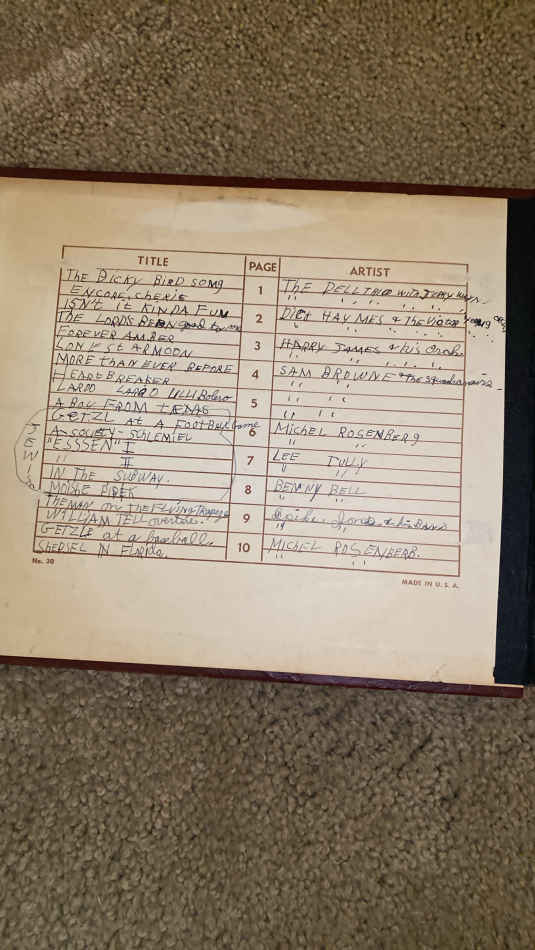 TITLE PAGE ARTIST
THE DICKY BIRD SONG 1 THE DELLTONES WITH JERRY
ENCORE, CHERIE " " " " "
ISN'T IT KINDA FUN 2 DICK HAYMES & THE VICTOR YOUNG ORCH.
THE LORD'S BEEN good to me " " " "
FOREVER AMBER 3 HARRY JAMES & his Orch.
LONESTAR MOON " " " "
MORE THAN EVER BEFORE 4 SAM BROWNE & The Squadronaires
HEARTBREAKER " "
LAROO LAROO LILLI Bolero 5 " "
A BOY FROM TEXAS " "
GETZL at A FootBall Game 6 MICHEL ROSENBERG
A SOCIETY - SCHLEMIEL " "
"ESSSEN" I 7 LEE TULLY
" II " "
IN THE SUBWAY. 8 BENNY BELL
MOISHE PIPEK " "
THE MAN ON THE FLYING TRAPEZE 9 Spike Jones & his Band
WILLIAM TELL overture. "
GETZL at a baseball 10 MICHEL ROSENBERG.
SHEPSEL IN Florida " "
JEWISH
No. 30
MADE IN U. S. A.